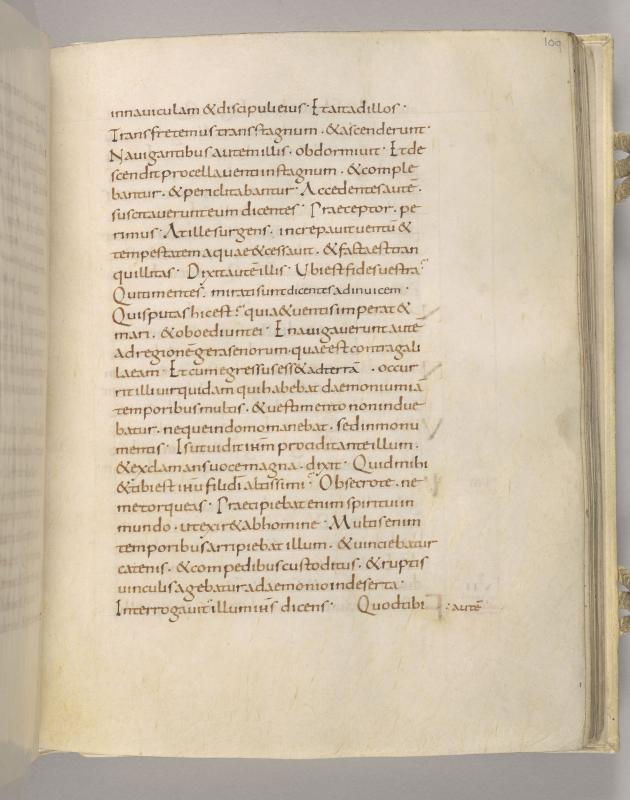 109
innauiculam &discipulieius· Etaitadillos·
Transfretemustransstagnum·&ascenderunt·
Nauigantibusautemillis·obdormiuit· Etde
scenditprocellauentiinstagnum·&comple
bantur·&periclitabantur· Accedentesautē·
suscitauerunteumdicentes· Praeceptor·pe
rimus· Atillesurgens·increpauituentū&
tempestatemaquae&cessauit·&factaesttran
quillitas· Dixitautēillis· Ubiestfidesuestra
Quitimentes·miratisuntdicentesadinuicem·
Quisputashicest· quia&uentisimperat&
mari·&oboediuntei· Enauigaueruntautē
adregionēgerasenorum·quaeestcontragali
laeam· Etcumegressusess&adterrā ·occur
ritilliuirquidamquihabebatdaemoniumiā
temporibusmultis·&uestimentononindue
batur·nequeindomomanebat·sedinmonu
mentis· Isutuiditihmprociditanteillum·
&exclamansuocemagna·dixit· Quidmihi
&tibiestihufilidialtissimi· Obsecrote·ne
metorqueas· Praecipiebatenimspirituiin
mundo·utexir&abhomine· Multisenim
temporibusarripiebatillum·&uinciebatur
catenis·&compedibuscustoditus·&ruptis
uinculisagebaturadaemonioindeserta·
Interrogauitillumihs dicens· Quodtibi ·autē